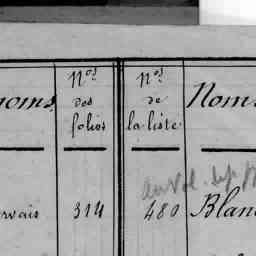 noms. Nos des folios Nos de la liste Noms
rvais 314 480 Blan